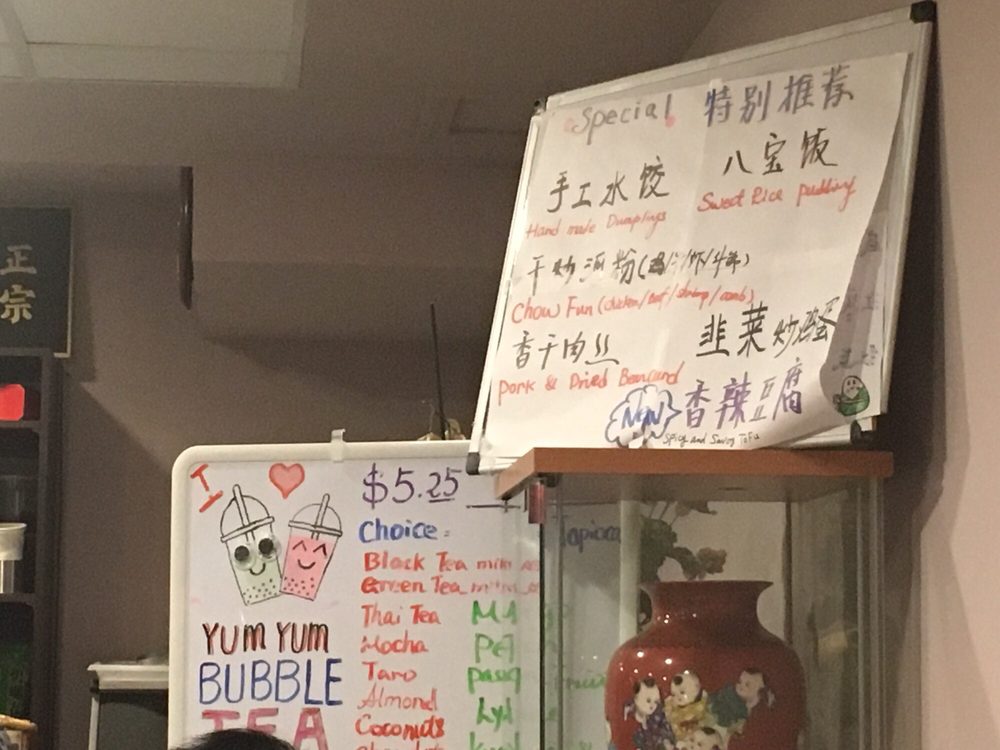 正宗
Special 特别推荐
手工水饺
Hand made Dumplings
八宝饭
Sweet Rice pudding
干炒河粉(鸡/牛/虾/
Chow Fun (chicken/beef/shrimp/
香干肉丝
pork & Dried Beancurd
韭菜炒鸡蛋
New 香辣豆腐
Spicy and Savory Tofu
I
$5.25
Choice:
Tapioca
Black Tea milk
Green Tea
Thai Tea
Mocha
Taro
Almond
Coconuts
YUM YUM
BUBBLE
TEA